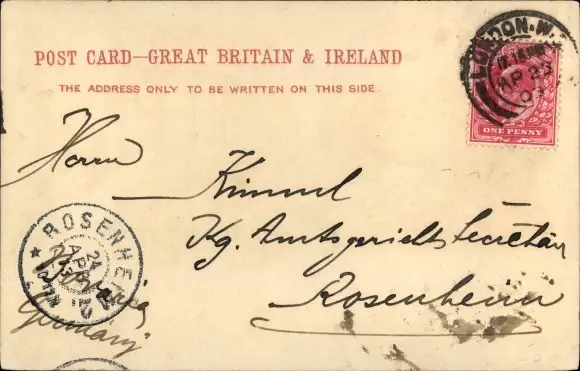 POST CARD—GREAT BRITAIN & IRELAND
THE ADDRESS ONLY TO BE WRITTEN ON THIS SIDE.
LONDON. W.
AP 23
ONE PENNY
Herrn
Kimmel
Kg. Amtsgerichts Secretär
Rosenheim
ROSENHEIM
24
APR
Germany